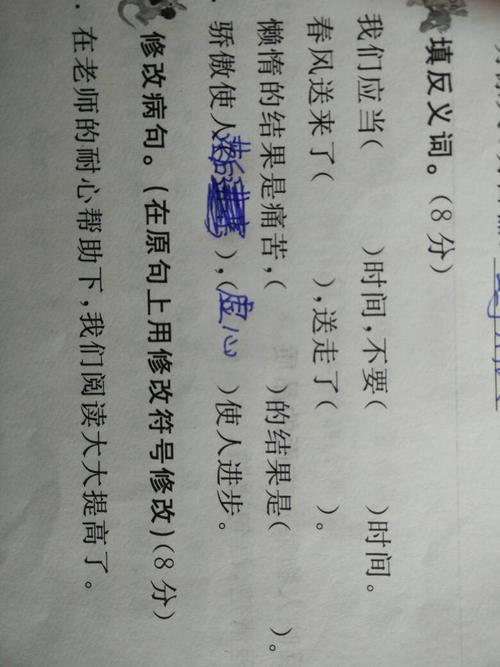 填反义词。(8分)
我们应当( )时间,不要( )时间。
春风送来了( ),送走了( )。
懒惰的结果是痛苦,( )的结果是( )。
骄傲使人( ),(虚心)使人进步。
修改病句。(在原句上用修改符号修改)(8分)
. 在老师的耐心帮助下,我们阅读大大提高了。